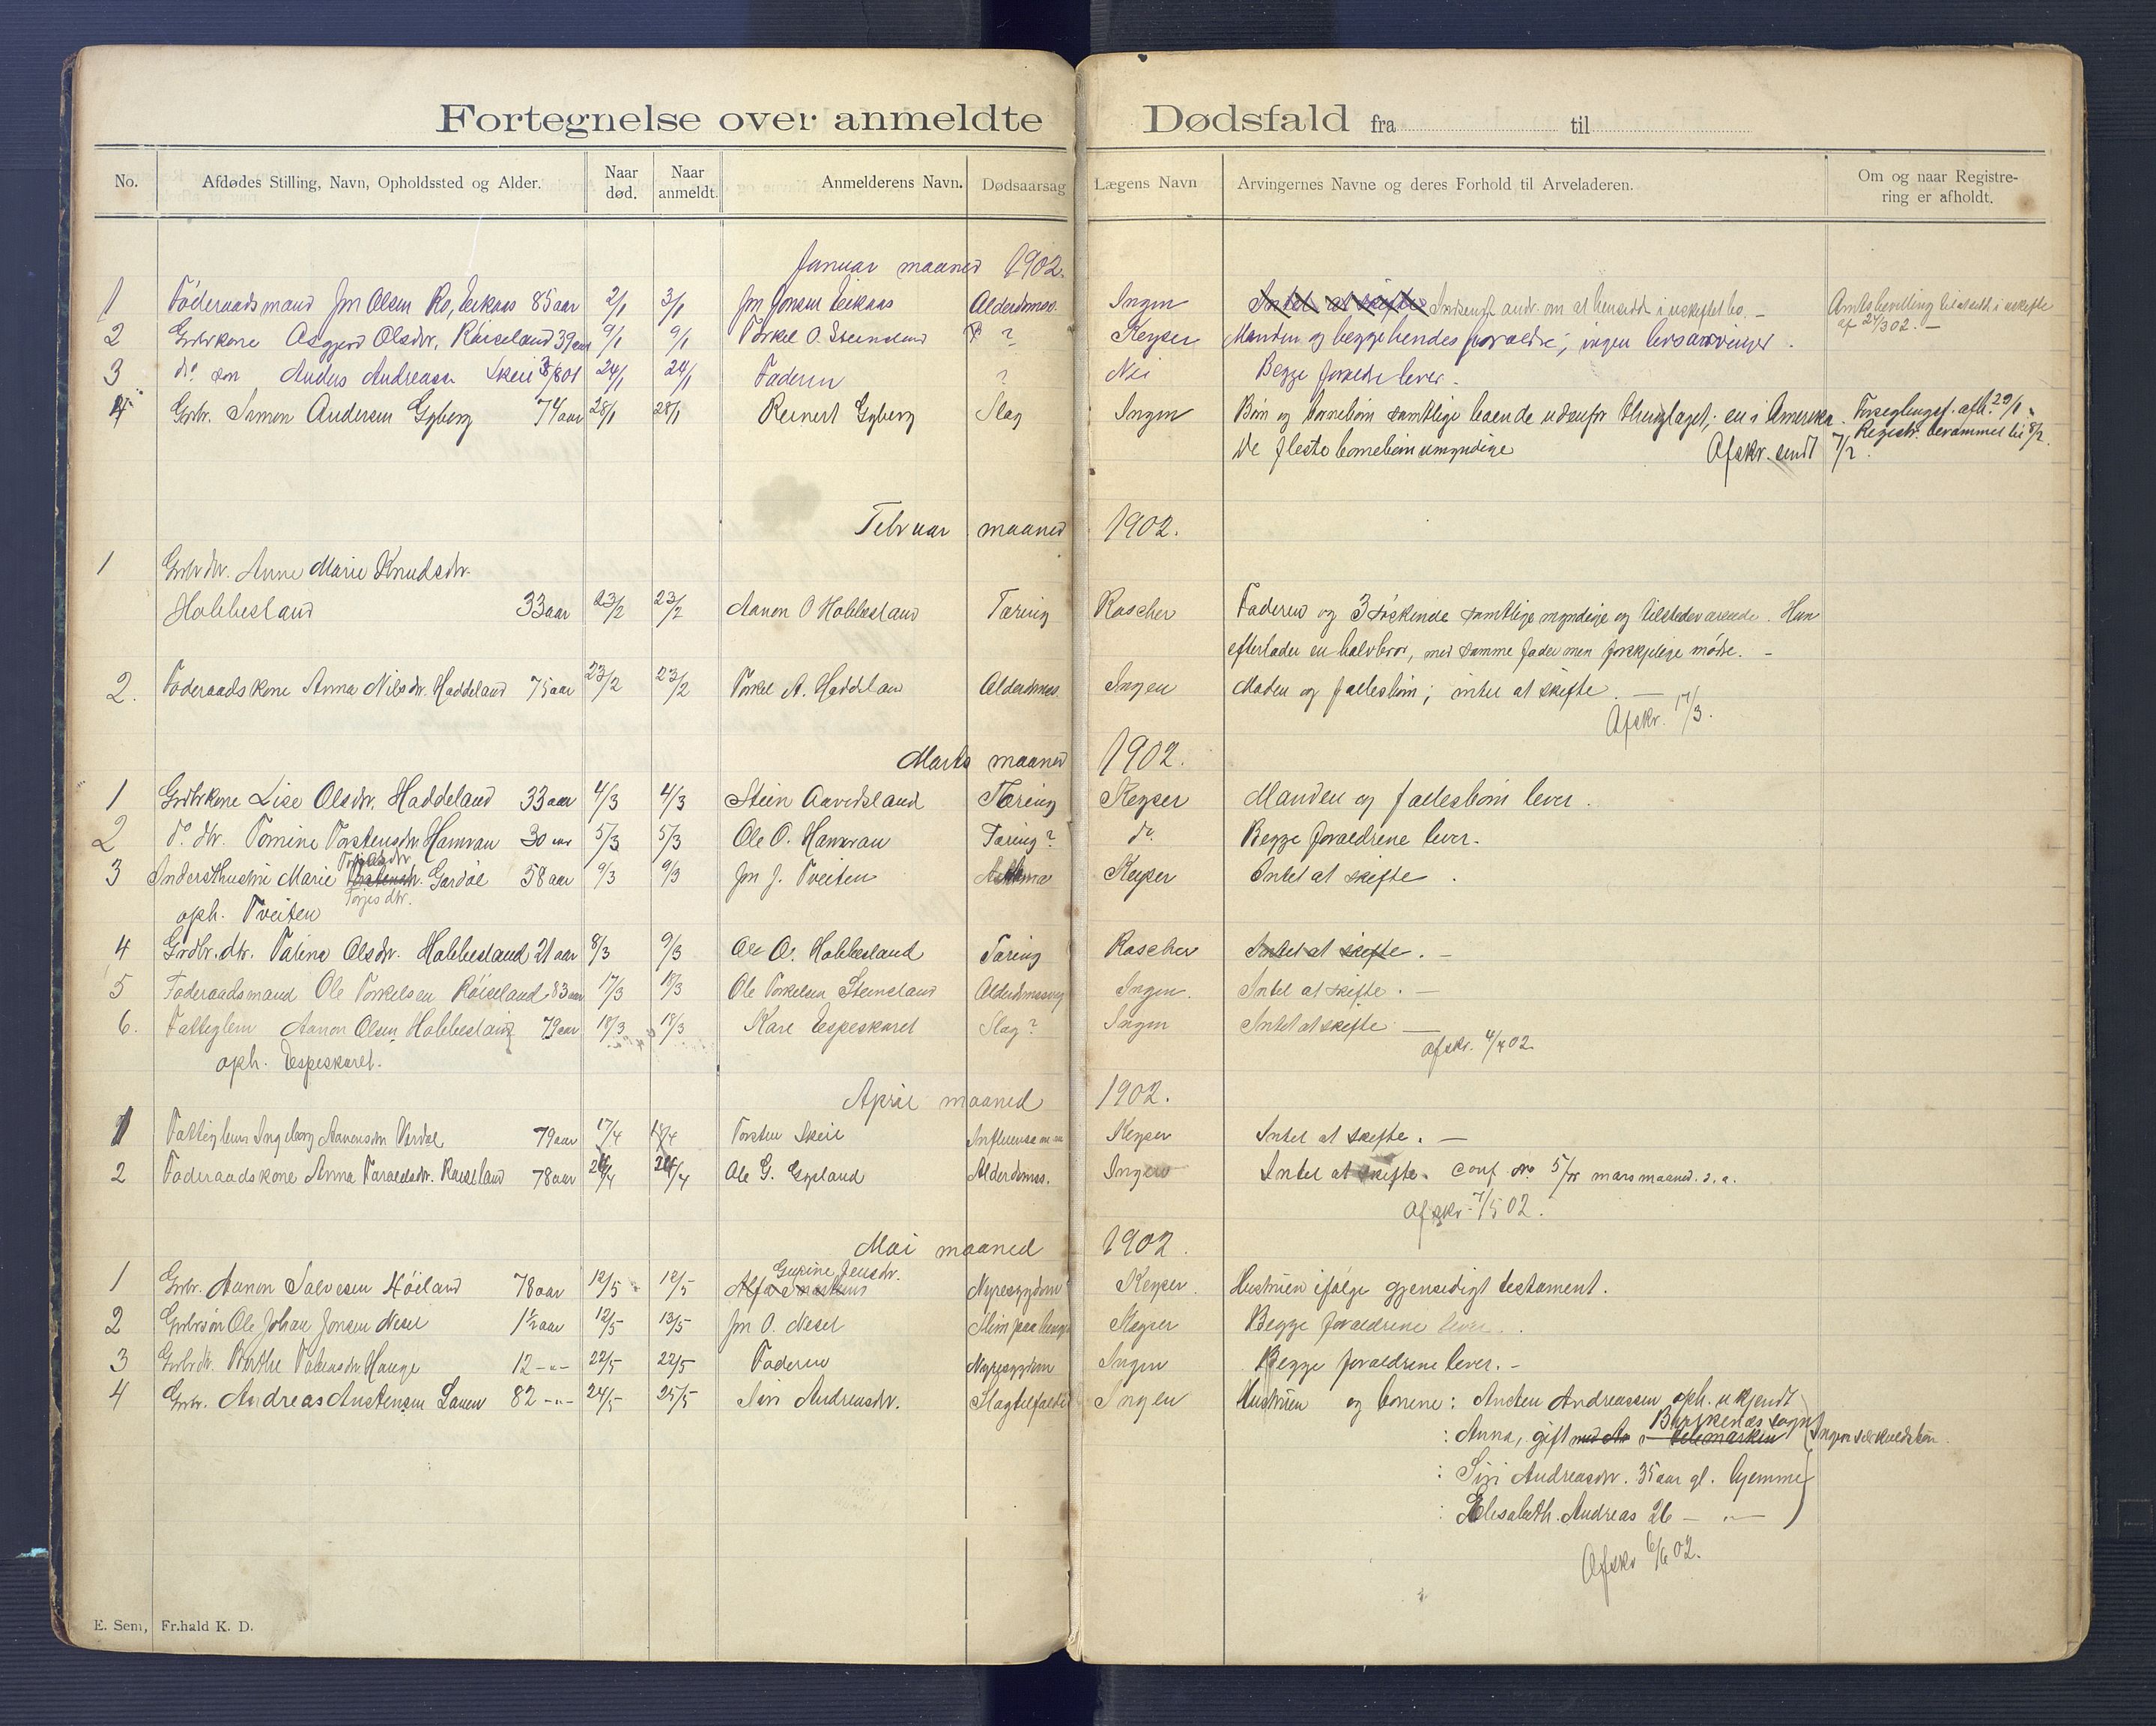 Fortegnelse over anmeldte Dødsfald fra til
No. Afdødes Stilling, Navn, Opholdssted og Alder. Naar død. Naar anmeldt. Anmelderens Navn. Dødsaarsag Lægens Navn Arvingernes Navne og deres Forhold til Arveladeren. Om og naar Registrering er afholdt.
Januar maaned 1902.
1 Föderaadsmand Jon Olsen Ro, Eikaas 85 aar 2/1 3/1 Jon Jonsen Eikaas Alderdomss. Ingen Intet at skifte i uskiftet bo. – Amtsbevilling i uskifte
af 24/3 02. –
2 Grbrkone Asgjerd Olsdr. Röiseland 39 aar 9/1 9/1 Torkel O. Steinsland ? Keyser Manden og begge hendes forældre; ingen livsarvinger.
3 do. søn Anders Andreasen Skeie 24/1 24/1 Faderen ? Nei Begge forældre lever.
4 Grbr. Simon Andersen Gyberg 74 aar 28/1 28/1 Reinert Gyberg Slag Ingen Börn og börnebörn samtlige boende udenfor thinglaget; en i Amerika. afh. 29/1
Registr. berammet til 8/2.
De fleste börnebörn umyndige Afskr. sendt 7/2.
Februar maaned 1902.
1 Grbr dtr. Anne Marie Knudsdtr.
Hobbesland 33 aar 23/2 23/2 Aanon O Hobbesland Tæring Roscher Faderen og 3 söskende samtlige myndige og tilstedeværende. Hun
efterlader en halvbror, med samme fader men forskjelige mödre. –
2. Föderaadskone Anna Nilsdr. Haddeland 75 aar 23/2 23/2 Torkel A. Haddeland Alderdomss. Ingen Manden og fællesbörn; intet at skifte. –
Afskr. 17/3.
Marts maaned 1902.
1 Grdbrkone Lise Olsdr. Haddeland 33 aar 4/3 4/3 Stein Aavedsland Tæring Keyser Manden og fællesbörn lever.
2 do. dtr. Tomine Torstensdr. Hamran 30 aar 5/3 5/3 Ole O. Hamran Tæring? do. Begge forældrene lever.
3 Inderst hustru Marie Gardöl 58 aar 9/3 9/3 Jon J. Tveiten Asthma Keyser Intet at skifte.
Torjesdtr.
oph. Tveiten
4 Grdbr. dtr. Taline Olsdr. Hobbesland 21 aar 8/3 9/3 Ole O. Hobbesland Tæring Roscher Intet at skifte. –
5 Föderaadsmand Ole Torkelsen Röiseland 83 aar 17/3 18/3 Ole Torkelsen Steinsland Alderdomssvag Ingen. Intet at skifte. –
6. Fattiglem Aanon Olsen Hobbesland 79 aar 18/3 18/3 Kare Espeskaret Slag? Ingen Intet at skifte –
oph. Espeskaret. afskr. 4/4 02.
April maaned 1902.
1 Fattiglem Ingeborg Aanonsdr. Verdal 79 aar 17/4 18/4 Torsten Skeie Influensa Keyser Intet at skifte. –
2 Föderaadskone Anna Taraldsdr. Röiseland 78 aar 26/4 26/4 Ole G. Eysland Alderdomss. Ingen Intet at skifte. conf. No. 5/ mars maaned. d. a.
Afskr. 7/5 02.
Mai maaned 1902.
Gurine Jensdr.
1 Grbr. Aanon Salvesen Höiland 78 aar 12/5 12/5 Nyresygdom Keyser. Hustruen ifölge gjensidigt testament.
2 Grbrsön Ole Johan Jonsen Nesel 1½ aar 12/5 13/5 Jon O. Nesel Slim paa lunge Keyser Begge forældrene lever.
3 Grbr dtr. Berthe Tobensdr. Hauge 12 -"- 22/5 22/5 Faderen Nyresygdom Ingen Begge forældrene lever. –
4 Grbr. Andreas Austensen Lauen 82 -"- 24/5 25/5 Siri Andreasdr. Slagtilfælde Ingen Hustruen og bönene: Austen Andreassen oph. ukjendt
: Anna, gift med An i telemarken Ingen særkuldsbörn.
: Siri Andreasdr. 35 aar gl. hjemme
: Elisabeth. Andreas 26 – " –
Afskr 6/6 02.
E. Sem, Fr.hald K. D.